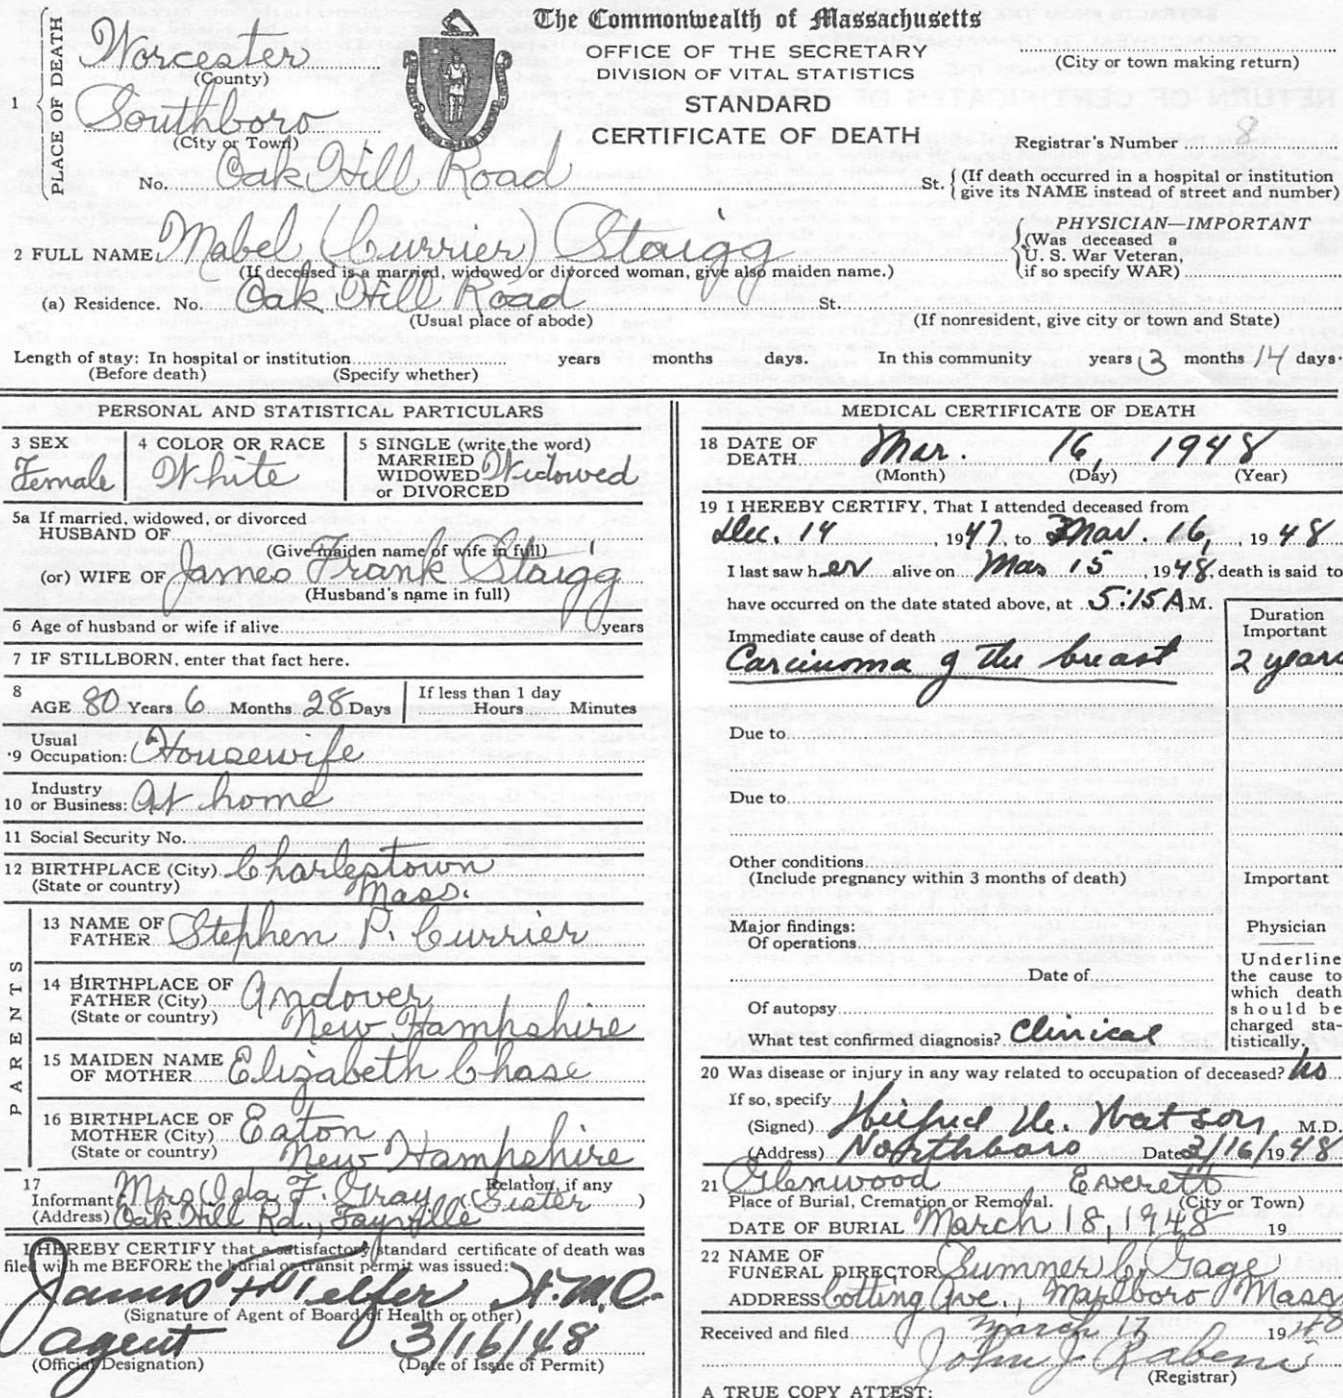 The Commonwealth of Massachusetts
OFFICE OF THE SECRETARY
DIVISION OF VITAL STATISTICS
STANDARD
CERTIFICATE OF DEATH
1 PLACE OF DEATH
Worcester
(County)
Southboro
(City or Town)
No. Oak Hill Road St.
(City or town making return)
Registrar's Number 8
(If death occurred in a hospital or institution
give its NAME instead of street and number)
2 FULL NAME Mabel (Currier) Staigg
(If deceased is a married, widowed or divorced woman, give also maiden name.)
PHYSICIAN—IMPORTANT
Was deceased a
U. S. War Veteran,
if so specify WAR)
(a) Residence. No. Oak Hill Road St.
(Usual place of abode)
(If nonresident, give city or town and State)
Length of stay: In hospital or institution years months days. In this community years 3 months 14 days.
(Before death) (Specify whether)
PERSONAL AND STATISTICAL PARTICULARS
3 SEX
Female
4 COLOR OR RACE
White
5 SINGLE (write the word)
MARRIED
WIDOWED Widowed
or DIVORCED
5a If married, widowed, or divorced
HUSBAND OF
(Give maiden name of wife in full)
(or) WIFE OF James Frank Staigg
(Husband's name in full)
6 Age of husband or wife if alive years
7 IF STILLBORN, enter that fact here.
8
AGE 80 Years 6 Months 28 Days
If less than 1 day
Hours Minutes
9 Usual
Occupation: Housewife
10 Industry
or Business: At home
11 Social Security No.
12 BIRTHPLACE (City) Charlestown
(State or country) Mass.
PARENTS
13 NAME OF
FATHER Stephen P. Currier
14 BIRTHPLACE OF
FATHER (City) Andover
(State or country) New Hampshire
15 MAIDEN NAME
OF MOTHER Elizabeth Chase
16 BIRTHPLACE OF
MOTHER (City) Eaton
(State or country) New Hampshire
17
Informant Mrs Ida F. Gray (Sister)
Relation, if any
(Address) Oak Hill Rd., Fayville
I HEREBY CERTIFY that a satisfactory standard certificate of death was
filed with me BEFORE the burial or transit permit was issued:
James H Telfer
(Signature of Agent of Board of Health or other)
agent 3/16/48
(Official Designation) (Date of Issue of Permit)
MEDICAL CERTIFICATE OF DEATH
18 DATE OF
DEATH Mar. 16, 1948
(Month) (Day) (Year)
19 I HEREBY CERTIFY, That I attended deceased from
Dec. 14, 1947, to Mar. 16, 1948
I last saw her alive on Mar 15, 1948, death is said to
have occurred on the date stated above, at 5:15 A M.
Duration
Important
Immediate cause of death
Carcinoma of the breast 2 years
Due to
Due to
Other conditions
(Include pregnancy within 3 months of death)
Important
Major findings:
Of operations
Date of
Of autopsy
What test confirmed diagnosis? Clinical
Physician
Underline
the cause to
which death
should be
charged sta-
tistically.
20 Was disease or injury in any way related to occupation of deceased? No
If so, specify
(Signed) Watson, M.D.
(Address) Northboro Date 3/16/1948
21 Glenwood Everett
Place of Burial, Cremation or Removal. (City or Town)
DATE OF BURIAL March 18, 1948 19
22 NAME OF
FUNERAL DIRECTOR Sumner C. Gage
ADDRESS Cotting Ave., Marlboro Mass.
Received and filed March 17 1948
John J.
(Registrar)
A TRUE COPY ATTEST: